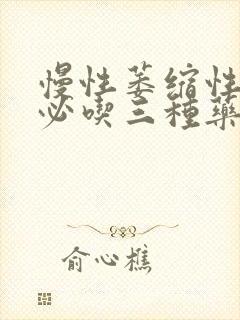 慢性萎缩性
必喫三種藥
俞心樵